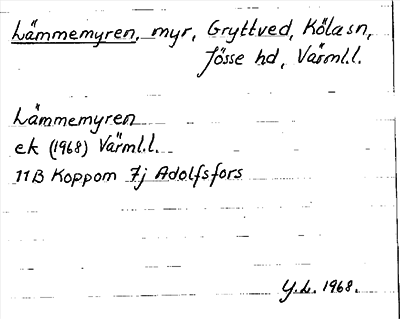 Lämmemyren, myr, Gryttved, Köla sn,
Jösse hd, Värml.l.
Lämmemyren
ek (1968) Värml.l.
11B Koppom 7j Adolfsfors
Y.L. 1968.